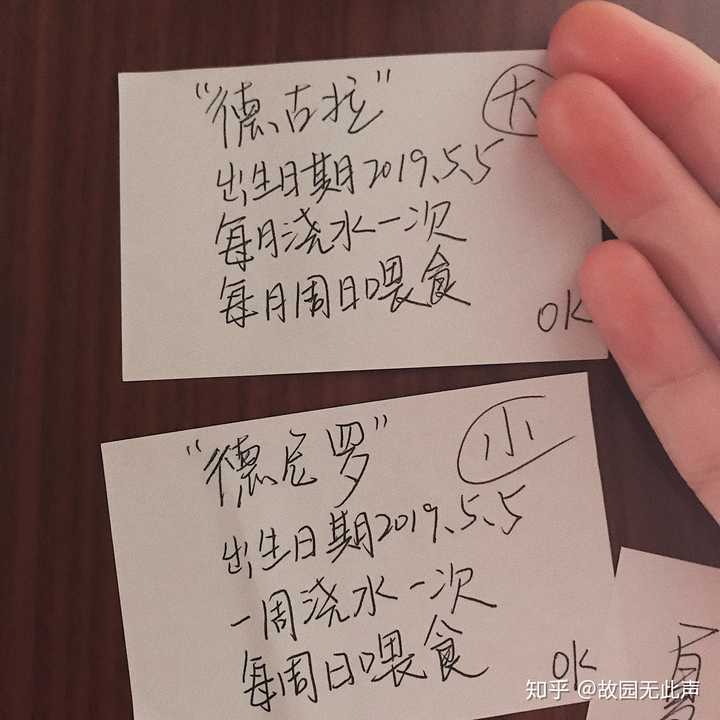 “德古拉” 大
出生日期2019.5.5
每月浇水一次
每月周日喂食
OK
“德尼罗” 小
出生日期2019.5.5
一周浇水一次
每周日喂食
OK
知乎 @故园无此声